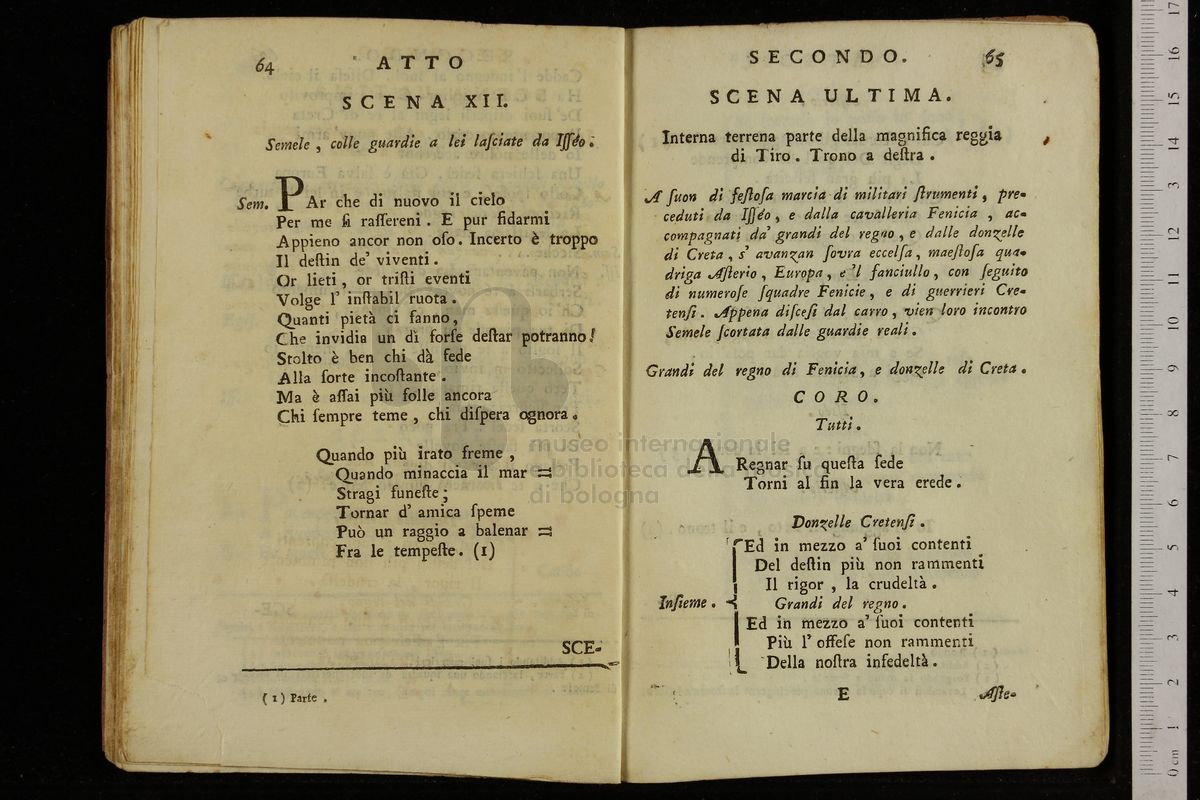 64
ATTO
SCENA XII.
Semele , colle guardie a lei laſciate da Iſſéo .
Sem. PAr che di nuovo il cielo
Per me ſi raſſereni . E pur fidarmi
Appieno ancor non oſo . Incerto è troppo
Il deſtin de' viventi .
Or lieti , or triſti eventi
Volge l' inſtabil ruota .
Quanti pietà ci fanno ,
Che invidia un dì forſe deſtar potranno !
Stolto è ben chi dà fede
Alla ſorte incoſtante .
Ma è aſſai più folle ancora
Chi ſempre teme , chi diſpera ognora .
Quando più irato freme ,
Quando minaccia il mar =
Stragi funeſte ;
Tornar d' amica ſpeme
Può un raggio a balenar =
Fra le tempeſte . (1)
SCE-
(1) Parte .
SECONDO.
65
SCENA ULTIMA.
Interna terrena parte della magnifica reggia
di Tiro . Trono a deſtra .
A ſuon di feſtoſa marcia di militari ſtrumenti , pre-
ceduti da Iſſéo , e dalla cavalleria Fenicia , ac-
compagnati da' grandi del regno , e dalle donzelle
di Creta , s' avanzan ſovra eccelſa , maeſtoſa qua-
driga Aſterio , Europa , e 'l fanciullo , con ſeguito
di numeroſe ſquadre Fenicie , e di guerrieri Cre-
tenſi . Appena diſceſi dal carro , vien loro incontro
Semele ſcortata dalle guardie reali .
Grandi del regno di Fenicia , e donzelle di Creta .
CORO.
Tutti .
A Regnar ſu queſta ſede
Torni al fin la vera erede .
Donzelle Cretenſi .
Ed in mezzo a' ſuoi contenti
Del deſtin più non rammenti
Il rigor , la crudeltà .
Inſieme . Grandi del regno .
Ed in mezzo a' ſuoi contenti
Più l' offeſe non rammenti
Della noſtra infedeltà .
E
Aſte-
museo internazionale
e biblioteca della musica
di bologna
0 cm 1 2 3 4 5 6 7 8 9 10 11 12 13 14 15 16 17